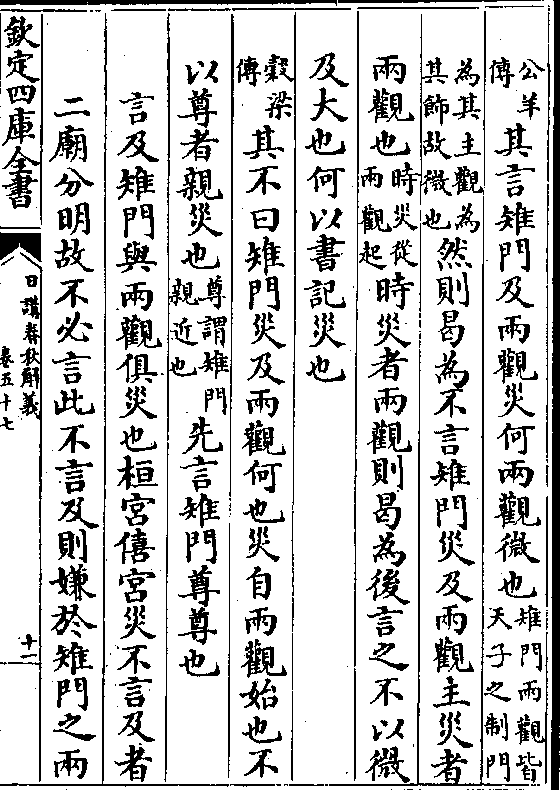 公羊傳其言雉門及兩觀災何兩觀微也雉門兩觀皆天子之制門
為其主觀為其飾故微也然則曷為不言雉門災及兩觀主災者
兩觀也時災從兩觀起時災者兩觀則曷為後言之不以微
及大也何以書記災也
穀梁傳其不曰雉門災及兩觀何也災自兩觀始也不
以尊者親災也尊謂雉門親近也先言雉門尊尊也
言及雉門與兩觀俱災也桓宮僖宮災不言及者
二廟分明故不必言此不言及則嫌於雉門之兩
欽定四庫全書
日講春秋解義
卷五十七
十一